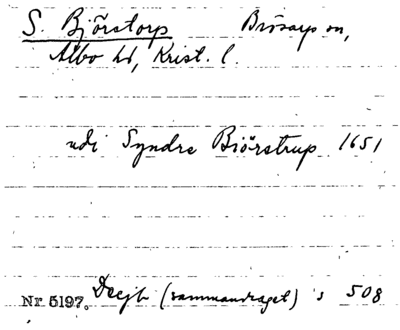 S. Björstorp Brösarp sn,
Albo hd, Krist. l.
udi Syndre Biörstrup 1651
Decjb (sammandraget) s 508
Nr 5197.